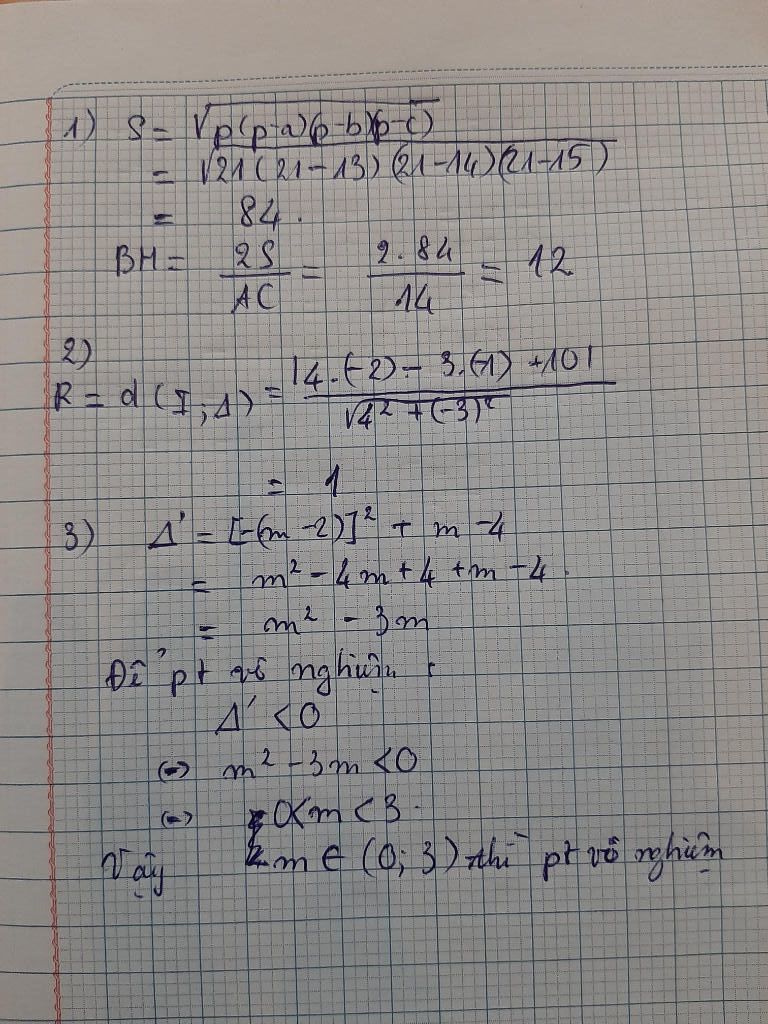 1) S = √p(p-a)(p-b)(p-c)
= √21(21-13)(21-14)(21-15)
= 84.
BH = 2S/AC = 2.84/14 = 12
2)
R = d(I;Δ) = |4.(-2) - 3.(-1) +10|/√4² + (-3)²
= 1
3) Δ' = [-(m-2)]² + m - 4
= m² - 4m + 4 + m - 4.
= m² - 3m
Để pt vô nghiệm :
Δ' < 0
⇔ m² - 3m < 0
⇔ 0 < m < 3.
Vậy m ∈ (0; 3) thì pt vô nghiệm